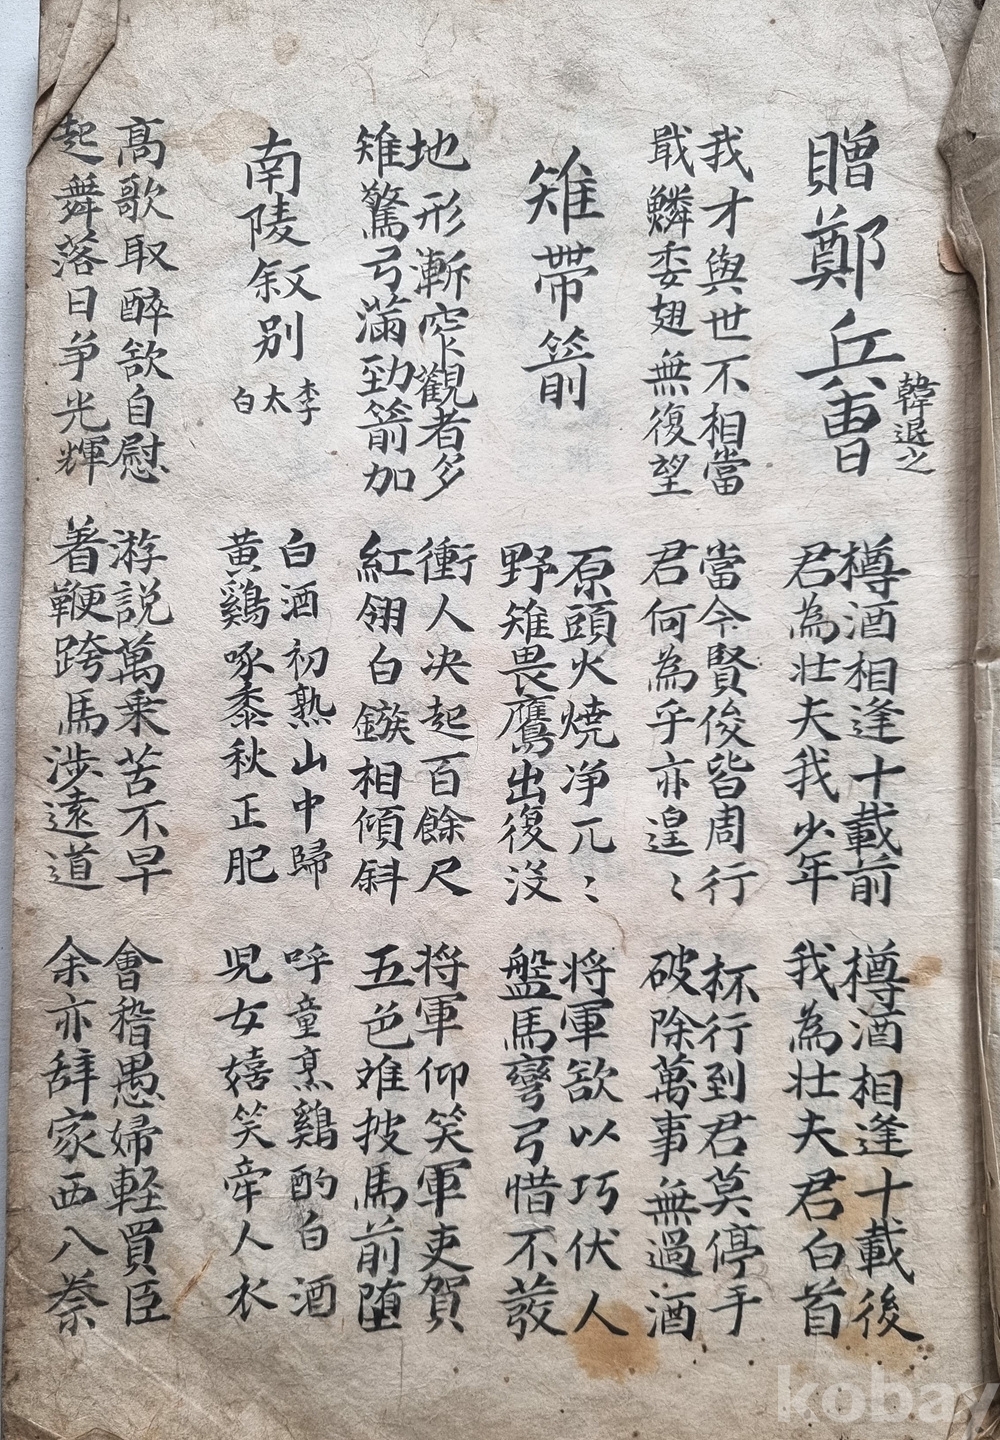 贈鄭兵曹
韓退之
樽酒相逢十載前
君為壮夫我少年
樽酒相逢十載後
我為壮夫君白首
我才與世不相當
戢鱗委翅無復望
當今賢俊皆周行
君何為乎亦遑〻
杯行到君莫停手
破除萬事無過酒
雉帶箭
原頭火燒净兀〻
野雉畏鷹出復没
将軍欲以巧伏人
盤馬彎弓惜不發
地形漸窄觀者多
雉驚弓滿勁箭加
衝人决起百餘尺
紅翎白鏃相傾斜
将軍仰笑軍吏賀
五色難披馬前堕
南陵叙别
李太白
白酒初熟山中歸
黄鷄啄黍秋正肥
呼童烹鷄酌白酒
児女嬉笑牵人衣
高歌取醉欲自慰
起舞落日争光輝
游説萬乗苦不早
着鞭跨馬涉遠道
會稽愚婦軽買臣
余亦辞家西入秦
kobay